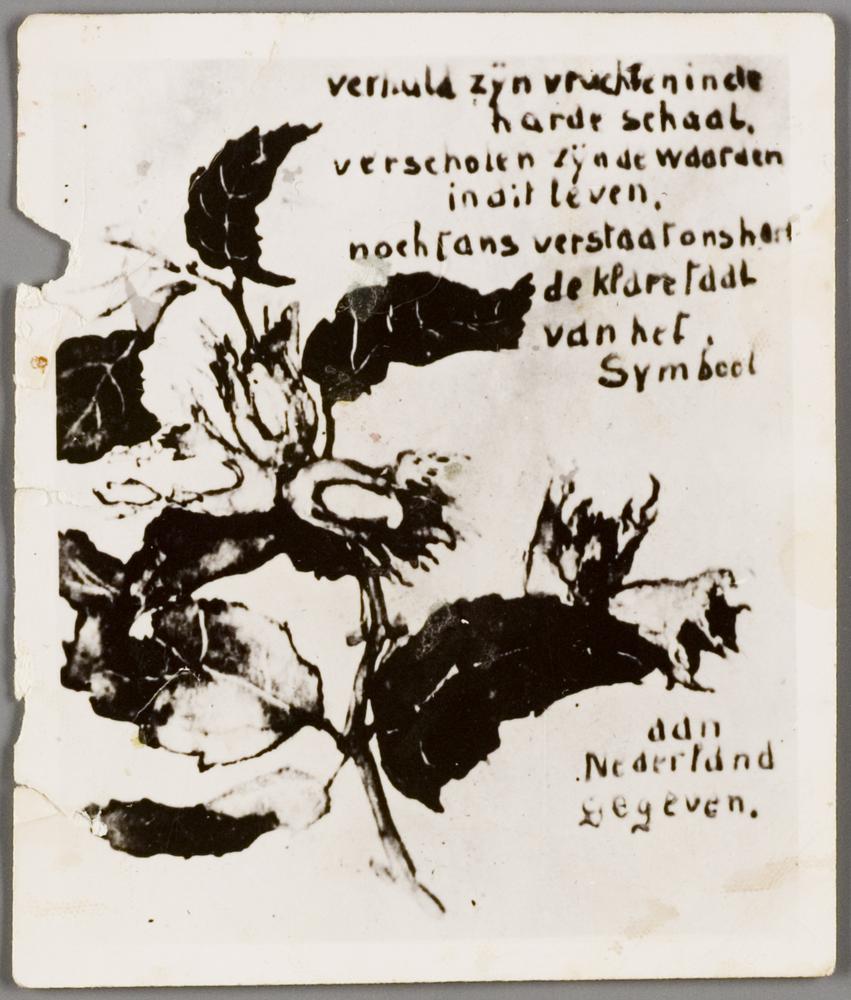 verhuld zijn vruchten in de
harde schaal,
verscholen zijn de waarden
in dit leven,
nochtans verstaat ons hart
de klare taal
van het
Symbool
aan
Nederland
gegeven.